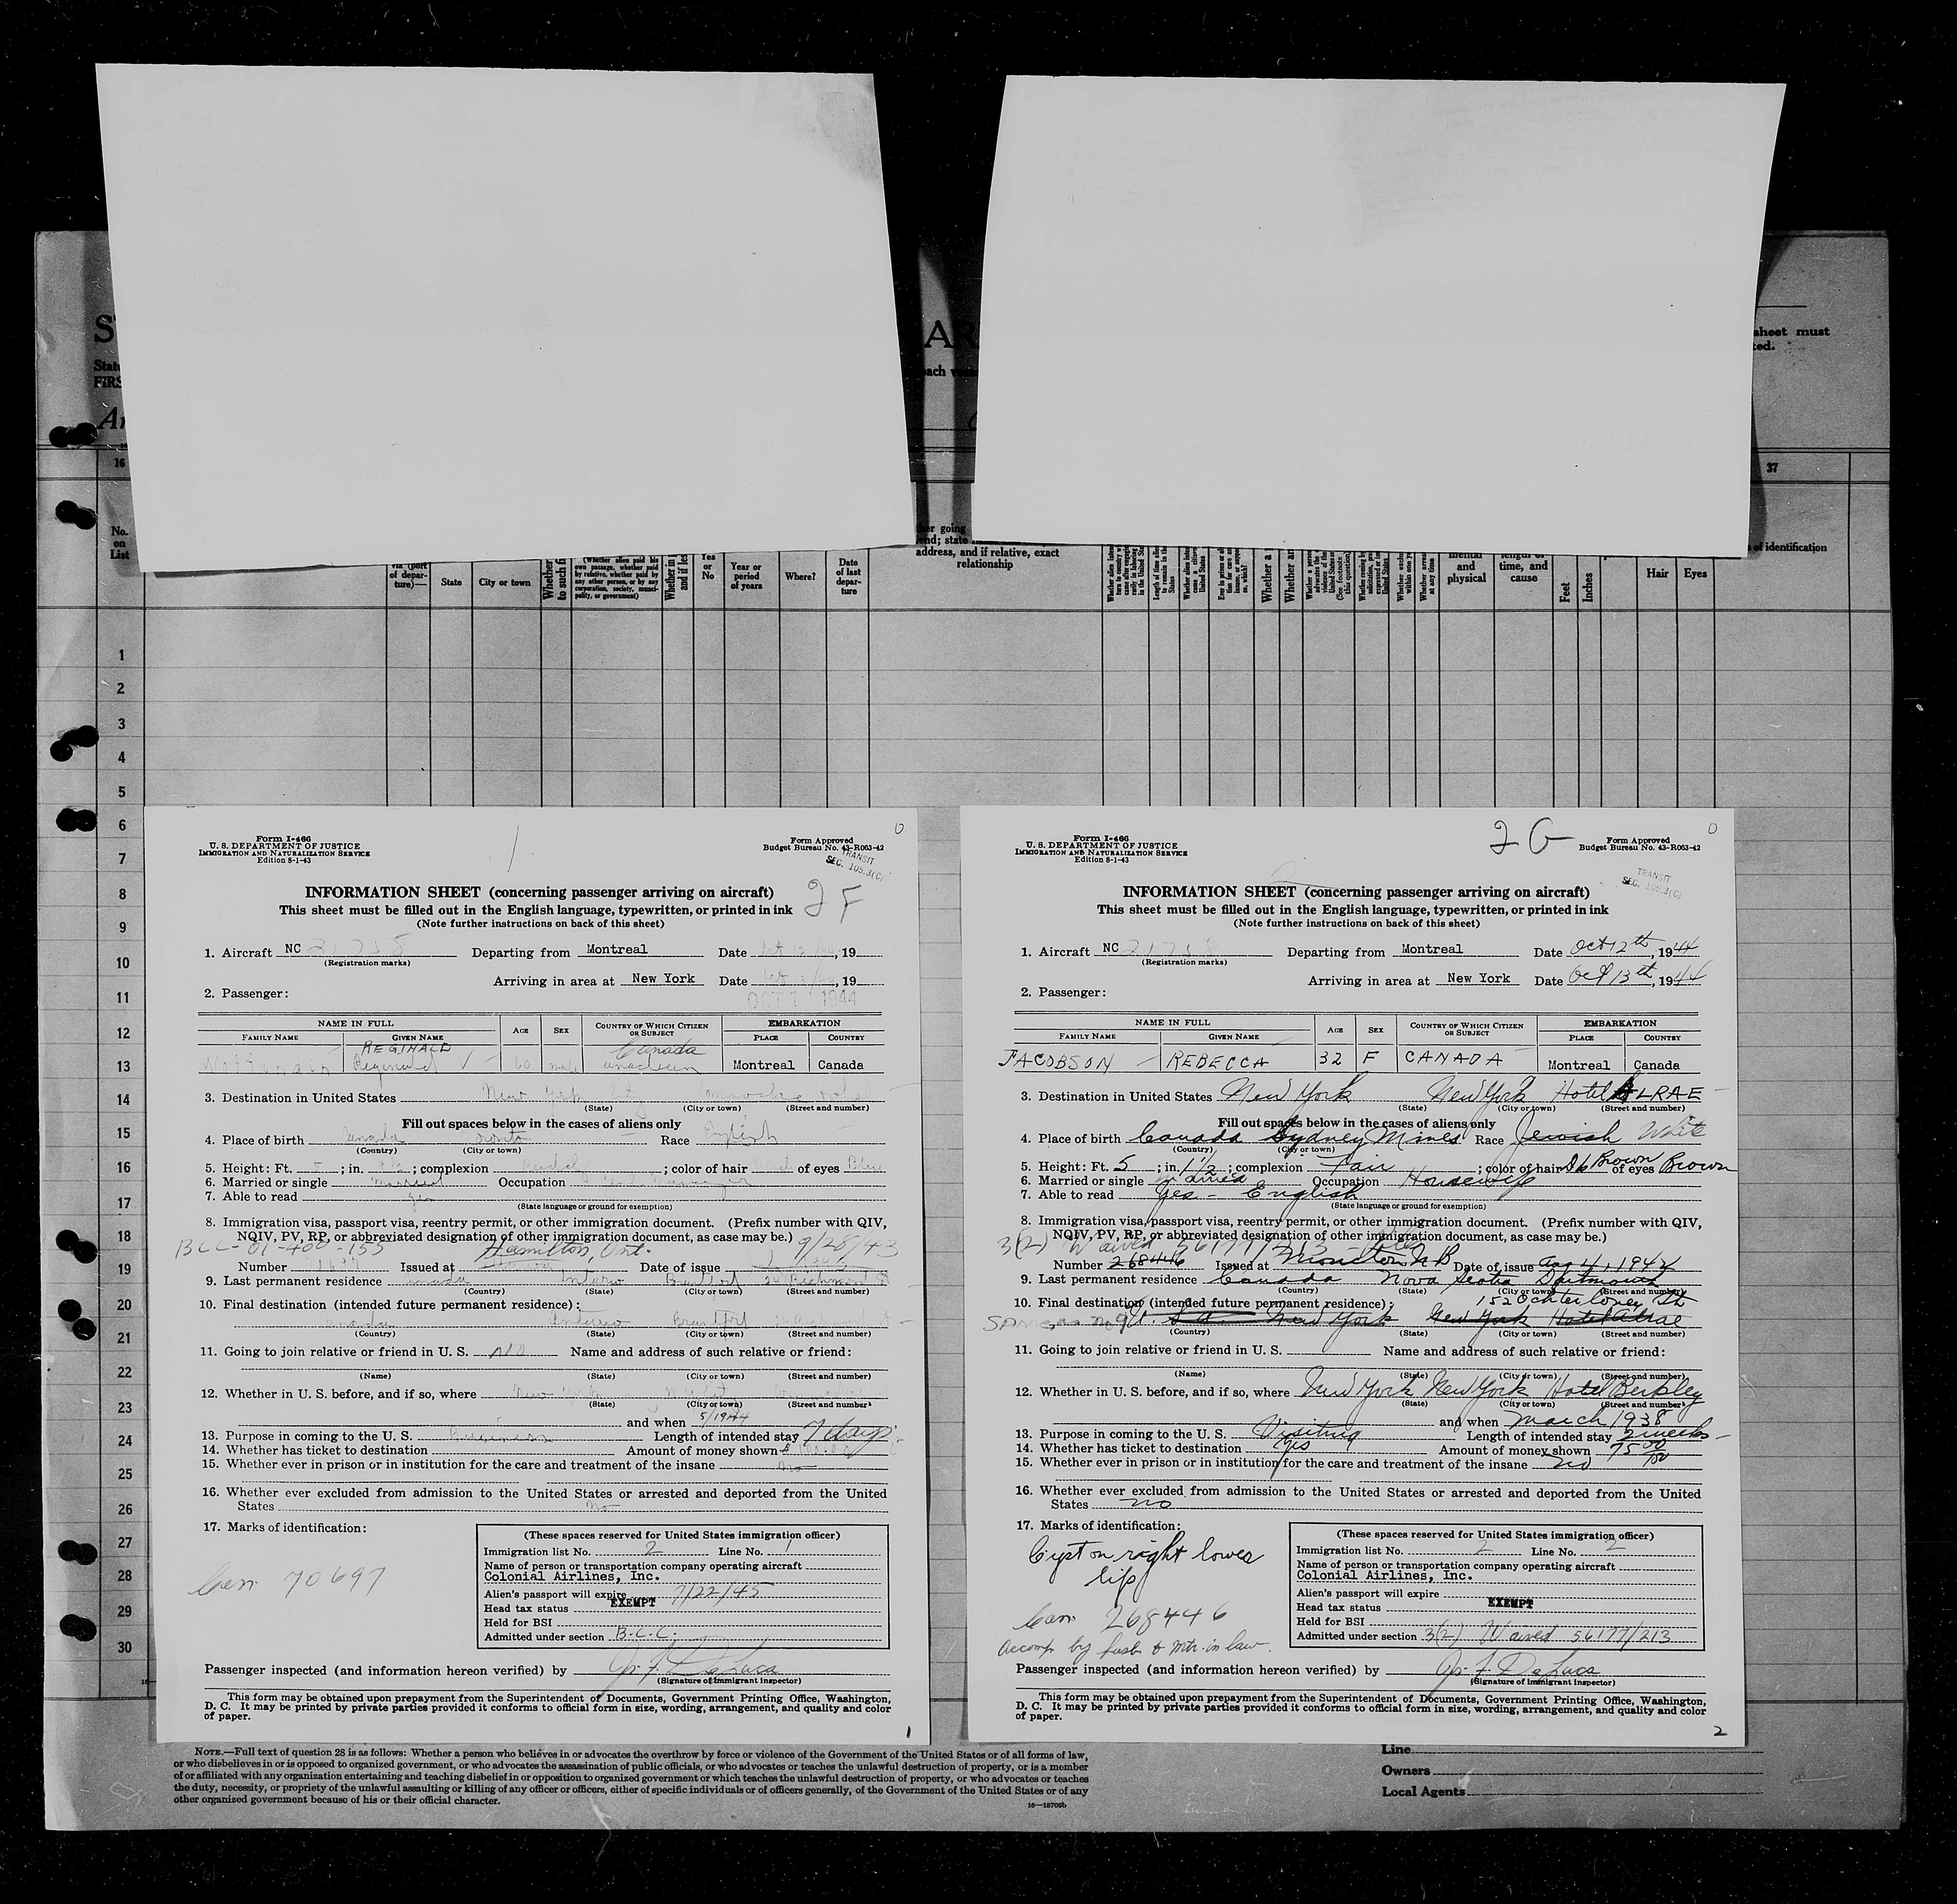 ST
AR
sheet must
ted.
State
FIRS
each
Ar
16
37
No.
on
List
via (port
of depar-
ture)—
State
City or town
(Whether alien paid his
own passage, whether paid
by relative, whether paid by
any other person, or by any
corporation, society, munici-
pality, or government)
Yes
or
No
Year or
period
of years
Where?
Date
of last
depar-
ture
address, and if relative, exact
relationship
mental
and
physical
length of
time, and
cause
Feet
Inches
Hair
Eyes
of identification
1
2
3
4
5
6
7
8
9
10
11
12
13
14
15
16
17
18
19
20
21
22
23
24
25
26
27
28
29
30
Form I-466
U. S. DEPARTMENT OF JUSTICE
IMMIGRATION AND NATURALIZATION SERVICE
Edition 8-1-43
1
Form Approved
Budget Bureau No. 43-R063-42
TRANSIT
SEC. 105.3(C)
0
INFORMATION SHEET (concerning passenger arriving on aircraft)
2 F
This sheet must be filled out in the English language, typewritten, or printed in ink
(Note further instructions on back of this sheet)
1. Aircraft NC 21758 Departing from Montreal Date Oct 12, 19
(Registration marks)
Arriving in area at New York Date , 19
2. Passenger:
OCT 1944
NAME IN FULL AGE SEX COUNTRY OF WHICH CITIZEN OR SUBJECT EMBARKATION
FAMILY NAME GIVEN NAME PLACE COUNTRY
REGINALD Canada
Reginald 60 male Montreal Canada
3. Destination in United States New York
(State) (City or town) (Street and number)
Fill out spaces below in the cases of aliens only
4. Place of birth Canada Toronto Race English
(Country) (City or town)
5. Height: Ft. 5; in. ; complexion ; color of hair of eyes Blue
6. Married or single Married Occupation Manager
7. Able to read yes
(State language or ground for exemption)
8. Immigration visa, passport visa, reentry permit, or other immigration document. (Prefix number with QIV,
NQIV, PV, RP, or abbreviated designation of other immigration document, as case may be.)
BCC-01-400-153 Hamilton, Ont. 9/28/43
Number Issued at Date of issue
9. Last permanent residence Canada Ontario Brantford
(Country) (State) (City or town) (Street and number)
10. Final destination (intended future permanent residence):
Canada Ontario Brantford
(Country) (State) (City or town) (Street and number)
11. Going to join relative or friend in U. S. NO Name and address of such relative or friend:
(Name) (State) (City or town) (Street and number)
12. Whether in U. S. before, and if so, where New York
(State) (City or town) (Street and number)
and when 5/1944
13. Purpose in coming to the U. S. Business Length of intended stay 7 days
14. Whether has ticket to destination Amount of money shown $
15. Whether ever in prison or in institution for the care and treatment of the insane No
16. Whether ever excluded from admission to the United States or arrested and deported from the United
States no
17. Marks of identification:
Can 70697
(These spaces reserved for United States immigration officer)
Immigration list No. 2 Line No. 1
Name of person or transportation company operating aircraft
Colonial Airlines, Inc.
Alien's passport will expire 7/22/45
Head tax status EXEMPT
Held for BSI
Admitted under section B.C.C.
Passenger inspected (and information hereon verified) by Jos. F. DeLuca
(Signature of immigrant inspector)
This form may be obtained upon prepayment from the Superintendent of Documents, Government Printing Office, Washington,
D. C. It may be printed by private parties provided it conforms to official form in size, wording, arrangement, and quality and color
of paper.
1
Form I-466
U. S. DEPARTMENT OF JUSTICE
IMMIGRATION AND NATURALIZATION SERVICE
Edition 8-1-43
2 G
Form Approved
Budget Bureau No. 43-R063-42
0
TRANSIT
SEC. 105.3(C)
INFORMATION SHEET (concerning passenger arriving on aircraft)
This sheet must be filled out in the English language, typewritten, or printed in ink
(Note further instructions on back of this sheet)
1. Aircraft NC 21758 Departing from Montreal Date Oct 12th, 1944
(Registration marks)
Arriving in area at New York Date Oct 13th, 1944
2. Passenger:
NAME IN FULL AGE SEX COUNTRY OF WHICH CITIZEN OR SUBJECT EMBARKATION
FAMILY NAME GIVEN NAME PLACE COUNTRY
JACOBSON REBECCA 32 F CANADA Montreal Canada
3. Destination in United States New York New York Hotel ALRAE
(State) (City or town) (Street and number)
Fill out spaces below in the cases of aliens only
4. Place of birth Canada Sydney Mines Race Jewish White
(Country) (City or town)
5. Height: Ft. 5; in. 1½; complexion Fair; color of hair Dk Brown of eyes Brown
6. Married or single Married Occupation Housewife
7. Able to read Yes - English
(State language or ground for exemption)
8. Immigration visa, passport visa, reentry permit, or other immigration document. (Prefix number with QIV,
NQIV, PV, RP, or abbreviated designation of other immigration document, as case may be.)
3(2) Waived 56177/213
Number 268446 Issued at Moncton N B Date of issue Aug 4, 1944
9. Last permanent residence Canada Nova Scotia Dartmouth
(Country) (State) (City or town) (Street and number)
10. Final destination (intended future permanent residence): 152 Ochterloney St
Same as no 9 New York New York Hotel Alrae
(Country) (State) (City or town) (Street and number)
11. Going to join relative or friend in U. S. Name and address of such relative or friend:
(Name) (State) (City or town) (Street and number)
12. Whether in U. S. before, and if so, where New York New York Hotel Berkley
(State) (City or town) (Street and number)
and when March 1938
13. Purpose in coming to the U. S. Visiting Length of intended stay 2 weeks
14. Whether has ticket to destination Yes Amount of money shown 75 00/100
15. Whether ever in prison or in institution for the care and treatment of the insane no
16. Whether ever excluded from admission to the United States or arrested and deported from the United
States no
17. Marks of identification:
Cyst on right lower
lip
Can 268446
Accomp by husb & Mtr. in law.
(These spaces reserved for United States immigration officer)
Immigration list No. 2 Line No. 2
Name of person or transportation company operating aircraft
Colonial Airlines, Inc.
Alien's passport will expire
Head tax status EXEMPT
Held for BSI
Admitted under section 3(2) Waived 56177/213
Passenger inspected (and information hereon verified) by Jos. F. DeLuca
(Signature of immigrant inspector)
This form may be obtained upon prepayment from the Superintendent of Documents, Government Printing Office, Washington,
D. C. It may be printed by private parties provided it conforms to official form in size, wording, arrangement, and quality and color
of paper.
2
NOTE.—Full text of question 28 is as follows: Whether a person who believes in or advocates the overthrow by force or violence of the Government of the United States or of all forms of law,
or who disbelieves in or is opposed to organized government, or who advocates the assassination of public officials, or who advocates or teaches the unlawful destruction of property, or is a member
of or affiliated with any organization entertaining and teaching disbelief in or opposition to organized government or which teaches the unlawful destruction of property, or who advocates or teaches
the duty, necessity, or propriety of the unlawful assaulting or killing of any officer or officers, either of specific individuals or of officers generally, of the Government of the United States or of any
other organized government because of his or their official character.
16—18709b
Line
Owners
Local Agents